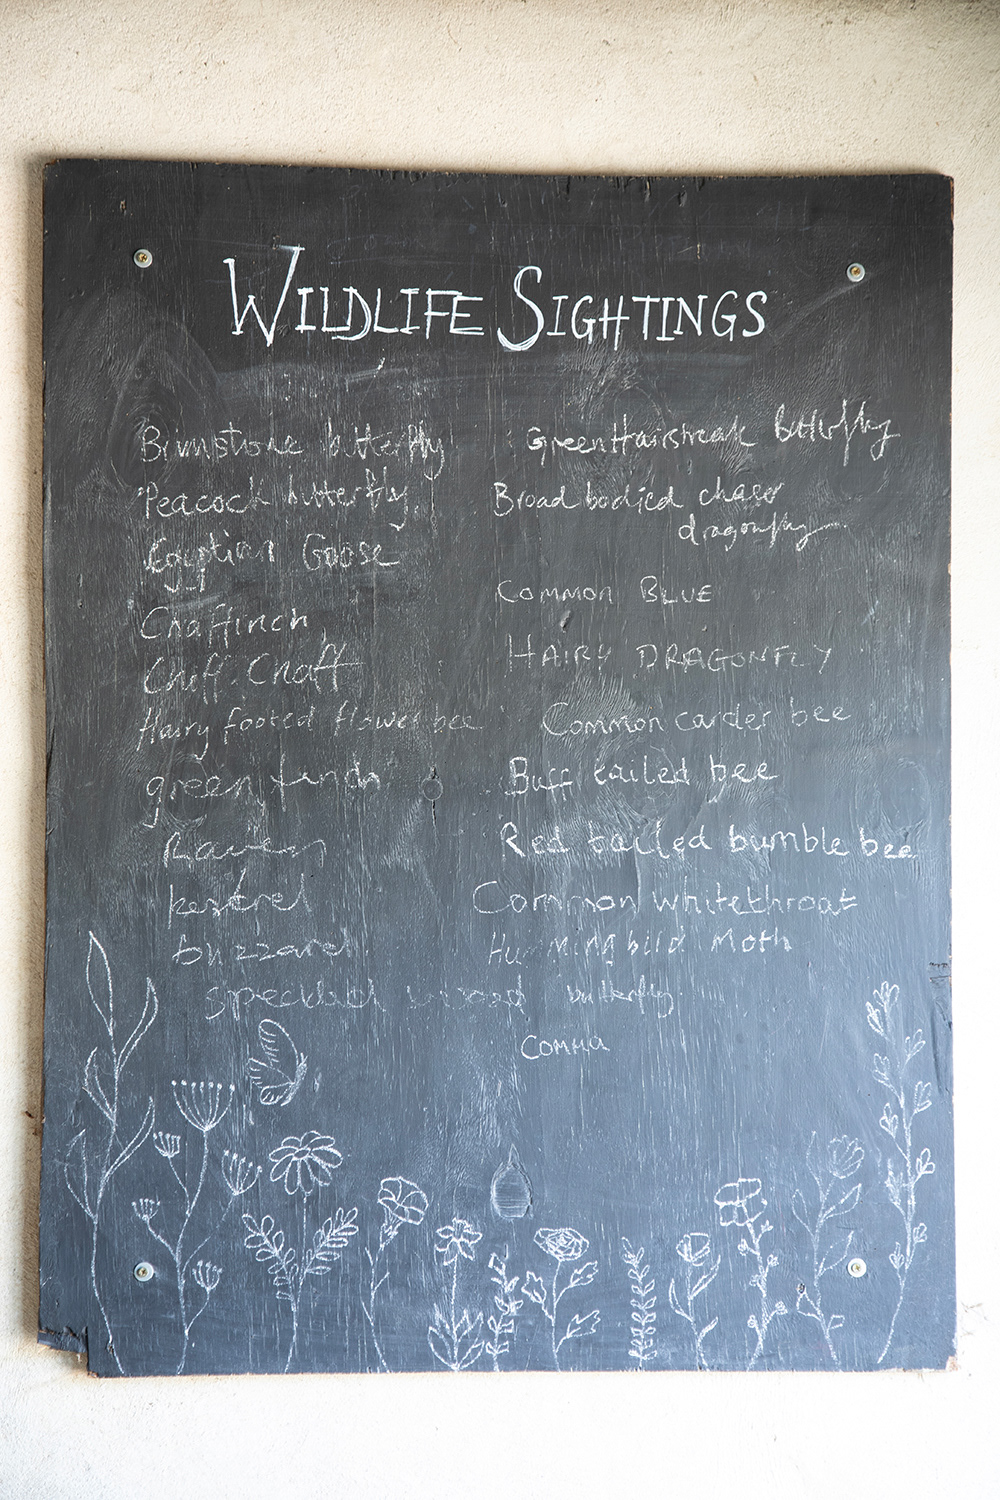 WILDLIFE SIGHTINGS
Brimstone butterfly
Peacock butterfly
Egyptian Goose
Chaffinch
Chiff Chaff
Hairy footed flower bee
green finch
Raven
kestrel
buzzard
speckled wood butterfly
Green Hairstreak butterfly
Broad bodied chaser
dragonfly
COMMON BLUE
HAIRY DRAGONFLY
Common carder bee
Buff tailed bee
Red tailed bumble bee
Common whitethroat
Hummingbird Moth
COMMA